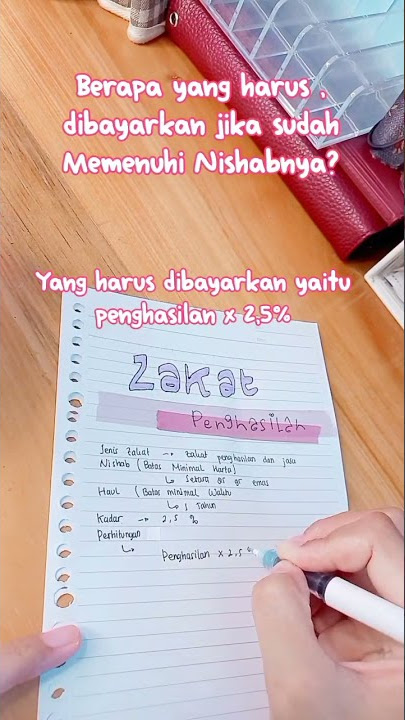 Berapa yang harus
dibayarkan jika sudah
Memenuhi Nishabnya?
Yang harus dibayarkan yaitu
penghasilan x 2,5%
Zakat
Penghasilan
Jenis Zakat → Zakat penghasilan dan jasa
Nishab (Batas Minimal Harta)
↳ Setara 85 gr emas
Haul (Batas minimal Waktu
↳ 1 Tahun
Kadar → 2,5 %
Perhitungan
↳ Penghasilan x 2,5 %